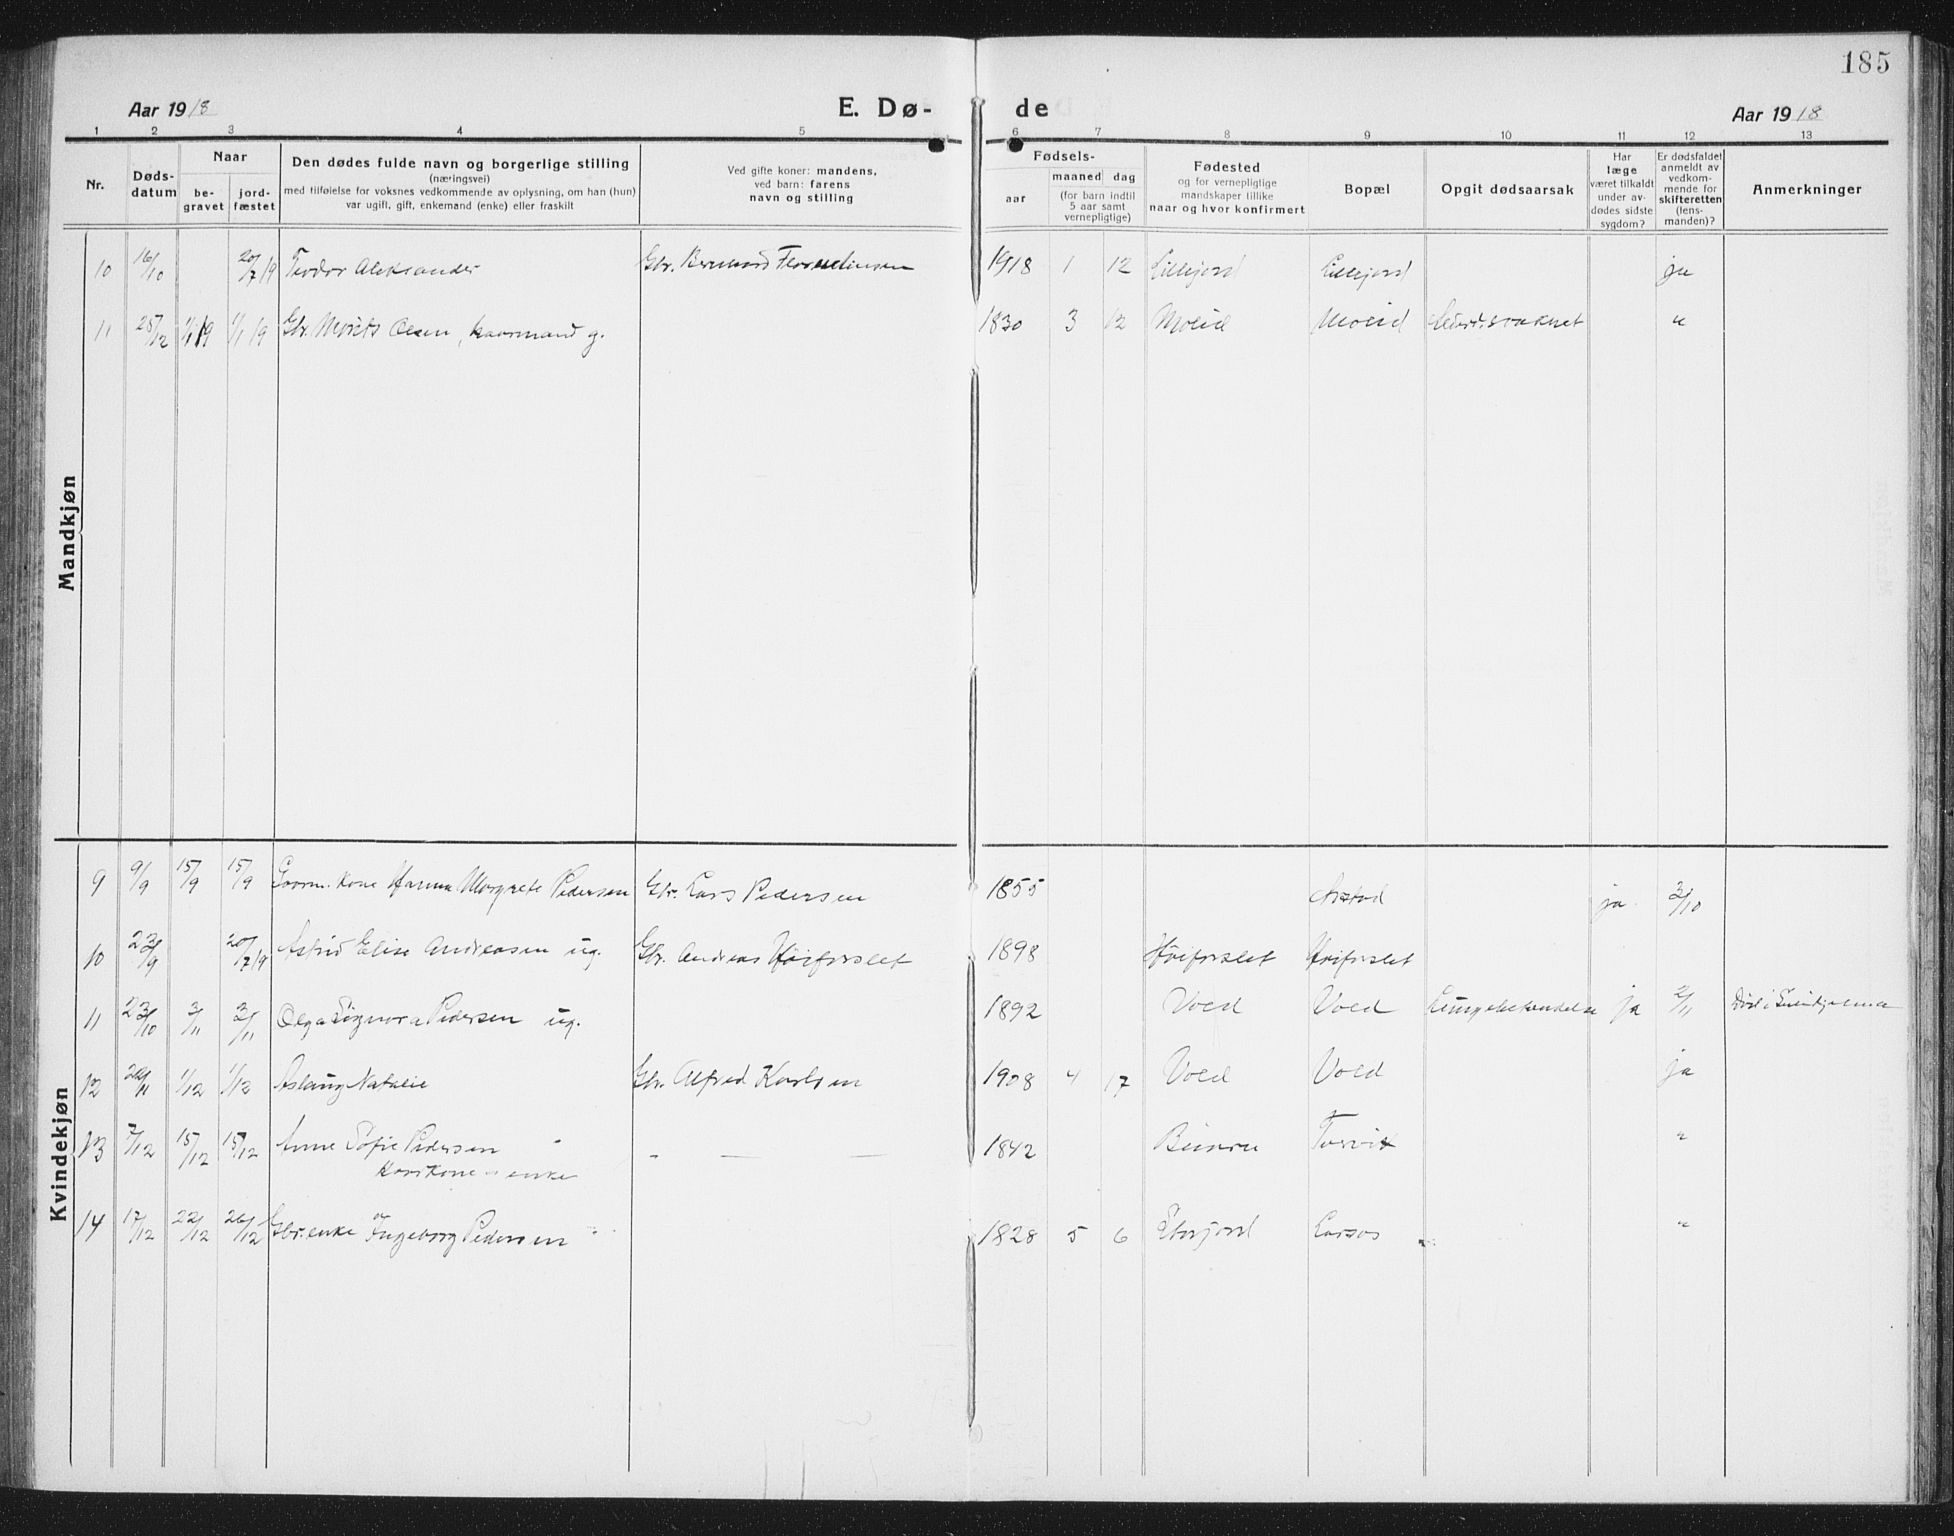 185
Aar 1918 E. Dø- de Aar 1918
1 2 3 4 5 6 7 8 9 10 11 12 13
Nr.
Døds-
datum
Naar
be-
gravet
jord-
fæstet
Den dødes fulde navn og borgerlige stilling
(næringsvei)
med tilføielse for voksnes vedkommende av oplysning, om han (hun)
var ugift, gift, enkemand (enke) eller fraskilt
Ved gifte koner: mandens,
ved barn: farens
navn og stilling
Fødsels-
aar
maaned dag
(for barn indtil
5 aar samt
vernepligtige)
Fødested
og for vernepligtige
mandskaper tillike
naar og hvor konfirmert
Bopæl
Opgit dødsaarsak
Har
læge
været tilkaldt
under av-
dødes sidste
sygdom?
Er dødsfaldet
anmeldt av
vedkom-
mende for
skifteretten
(lens-
manden)?
Anmerkninger
Mandkjøn
10 16/10 20/7 19 Teodor Aleksander Gbr. 1918 1 12 Lillejord Lillejord ja
11 1/1 19 1/1 19 Gbr. Morits Olsen, kaarmand g. 1830 3 12 Moeid Moeid "
Kvindekjøn
9 9/9 15/9 15/9 Kaarm. kone Hanna Margrete Pedersen Gbr. Lars Pedersen 1855 Arstad ja 3/10
10 23/9 20/7 19 Astrid Elise Andreasen ug. Gbr. Andreas Høiforslet 1898 Høiforslet Høiforslet
11 23/10 3/11 3/11 Olga Signora Pedersen ug. 1892 Vold Vold Lungebetændelse ja 2/11
12 1/12 1/12 Aslaug Natalie Gbr. Alfred Karlsen 1908 4 17 Vold Vold ja
13 7/12 15/12 15/12 Anne Sofie Pedersen - — — 1842 Torvik "
Kaarkone - enke
14 17/12 22/12 26/12 Gbr. enke Ingeborg Pedersen 1828 5 6 Storjord Larsos "